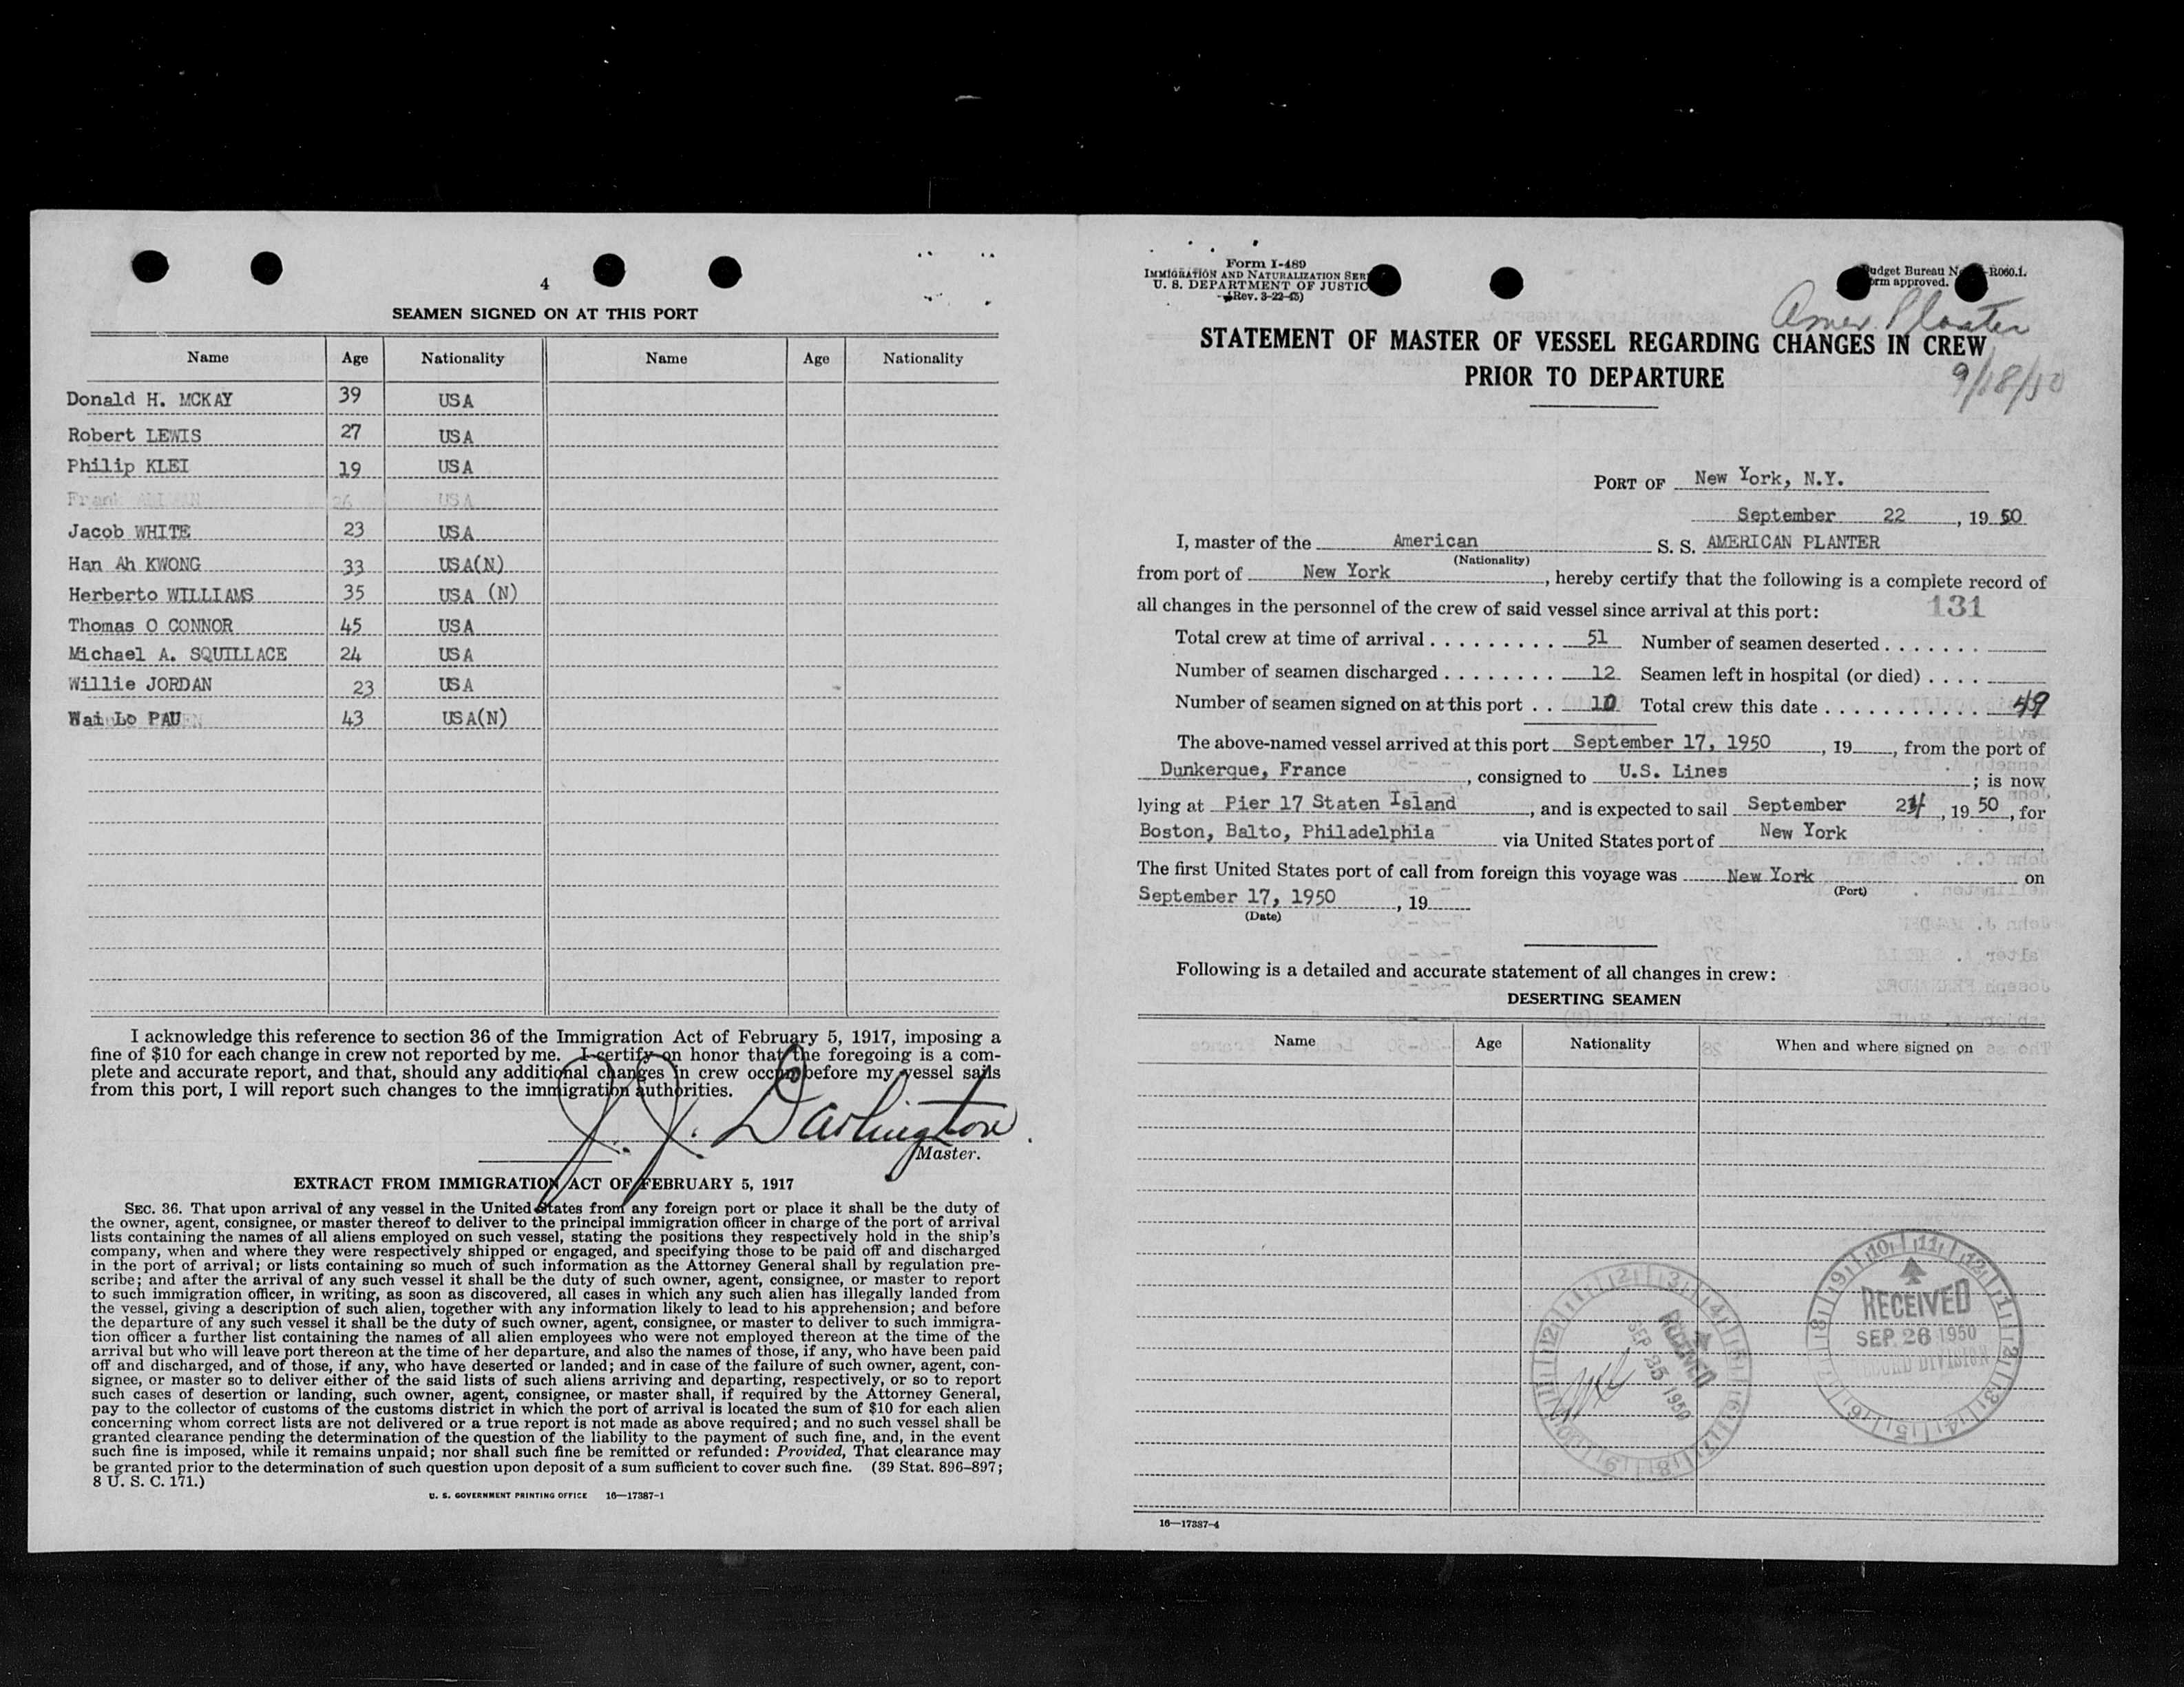 4
SEAMEN SIGNED ON AT THIS PORT
Name Age Nationality Name Age Nationality
Donald H. MCKAY 39 USA
Robert LEWIS 27 USA
Philip KLEI 19 USA
Frank 26 USA
Jacob WHITE 23 USA
Han Ah KWONG 33 USA(N)
Herberto WILLIAMS 35 USA (N)
Thomas O CONNOR 45 USA
Michael A. SQUILLACE 24 USA
Willie JORDAN 23 USA
Wai Lo PAU 43 USA(N)
I acknowledge this reference to section 36 of the Immigration Act of February 5, 1917, imposing a
fine of $10 for each change in crew not reported by me. I certify on honor that the foregoing is a com-
plete and accurate report, and that, should any additional changes in crew occur before my vessel sails
from this port, I will report such changes to the immigration authorities.
J. J. Darlington
Master.
EXTRACT FROM IMMIGRATION ACT OF FEBRUARY 5, 1917
SEC. 36. That upon arrival of any vessel in the United States from any foreign port or place it shall be the duty of
the owner, agent, consignee, or master thereof to deliver to the principal immigration officer in charge of the port of arrival
lists containing the names of all aliens employed on such vessel, stating the positions they respectively hold in the ship's
company, when and where they were respectively shipped or engaged, and specifying those to be paid off and discharged
in the port of arrival; or lists containing so much of such information as the Attorney General shall by regulation pre-
scribe; and after the arrival of any such vessel it shall be the duty of such owner, agent, consignee, or master to report
to such immigration officer, in writing, as soon as discovered, all cases in which any such alien has illegally landed from
the vessel, giving a description of such alien, together with any information likely to lead to his apprehension; and before
the departure of any such vessel it shall be the duty of such owner, agent, consignee, or master to deliver to such immigra-
tion officer a further list containing the names of all alien employees who were not employed thereon at the time of the
arrival but who will leave port thereon at the time of her departure, and also the names of those, if any, who have been paid
off and discharged, and of those, if any, who have deserted or landed; and in case of the failure of such owner, agent, con-
signee, or master so to deliver either of the said lists of such aliens arriving and departing, respectively, or so to report
such cases of desertion or landing, such owner, agent, consignee, or master shall, if required by the Attorney General,
pay to the collector of customs of the customs district in which the port of arrival is located the sum of $10 for each alien
concerning whom correct lists are not delivered or a true report is not made as above required; and no such vessel shall be
granted clearance pending the determination of the question of the liability to the payment of such fine, and, in the event
such fine is imposed, while it remains unpaid; nor shall such fine be remitted or refunded: Provided, That clearance may
be granted prior to the determination of such question upon deposit of a sum sufficient to cover such fine. (39 Stat. 896–897;
8 U. S. C. 171.)
U. S. GOVERNMENT PRINTING OFFICE 16—17387-1
Form I-489
IMMIGRATION AND NATURALIZATION SER
U. S. DEPARTMENT OF JUSTIC
(Rev. 3-22-45)
udget Bureau N -R060.1.
orm approved.
Amer. Planter
9/18/50
STATEMENT OF MASTER OF VESSEL REGARDING CHANGES IN CREW
PRIOR TO DEPARTURE
PORT OF New York, N.Y.
September 22, 19 50
I, master of the American S. S. AMERICAN PLANTER
(Nationality)
from port of New York, hereby certify that the following is a complete record of
all changes in the personnel of the crew of said vessel since arrival at this port:
131
Total crew at time of arrival . . . . . . . . . 51 Number of seamen deserted . . . . . . .
Number of seamen discharged . . . . . . . . 12 Seamen left in hospital (or died) . . . .
Number of seamen signed on at this port . . 10 Total crew this date . . . . . . . . . . . 49
The above-named vessel arrived at this port September 17, 1950, 19, from the port of
Dunkerque, France, consigned to U.S. Lines; is now
lying at Pier 17 Staten Island, and is expected to sail September 24, 19 50, for
Boston, Balto, Philadelphia via United States port of New York
The first United States port of call from foreign this voyage was New York on
(Port)
September 17, 1950, 19
(Date)
Following is a detailed and accurate statement of all changes in crew:
DESERTING SEAMEN
Name Age Nationality When and where signed on
RECEIVED
SEP 25 1950
RECEIVED
SEP 26 1950
RECORD DIVISION
16—17387-4